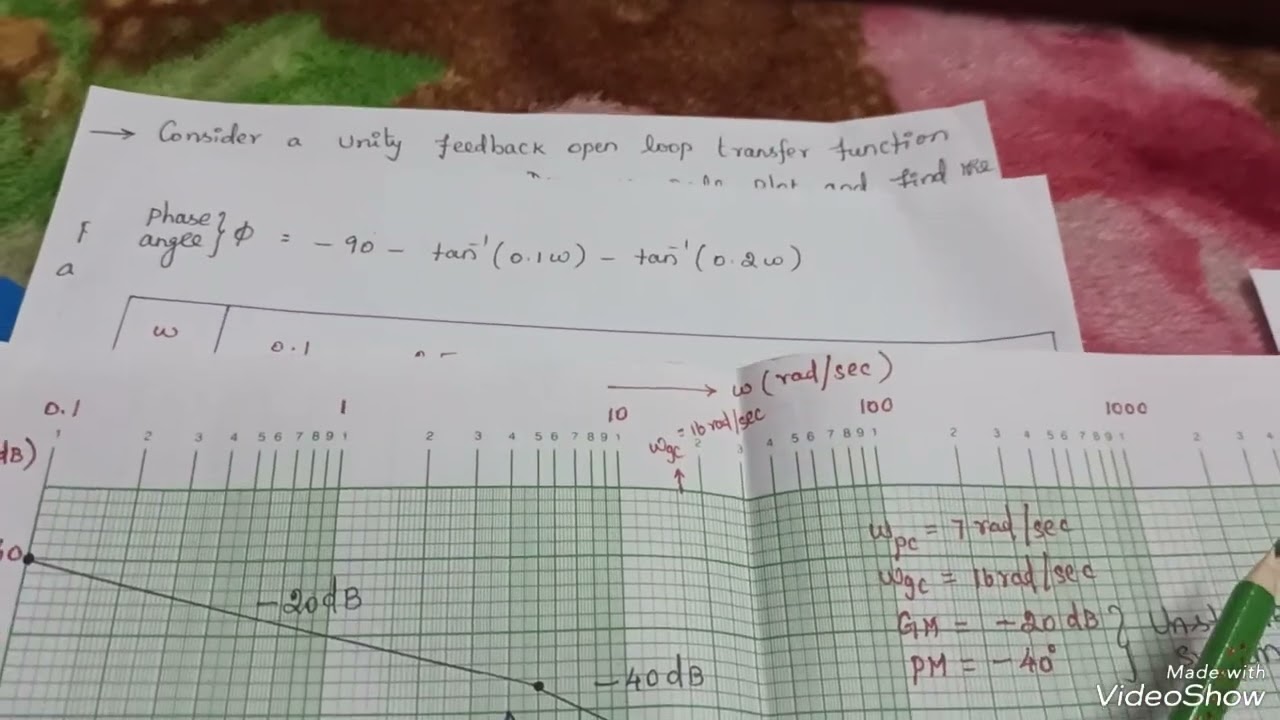 → Consider a unity feedback open loop transfer function
plot and find the
phase
angle } ϕ = - 90 - tan⁻¹(0.1ω) - tan⁻¹(0.2ω)
a
ω 0.1
→ ω (rad/sec)
0.1 1 10 100 1000
ωgc = 16 rad/sec
1 2 3 4 5 6 7 8 9 1 2 3 4 5 6 7 8 9 1 2 3 4 5 6 7 8 9 1 2 3 4 5 6 7 8 9 1 2 3 4
dB)
-20dB
-40dB
ωpc = 7 rad/sec
ωgc = 16 rad/sec
GM = -20dB }
PM = -40°
Made with
VideoShow